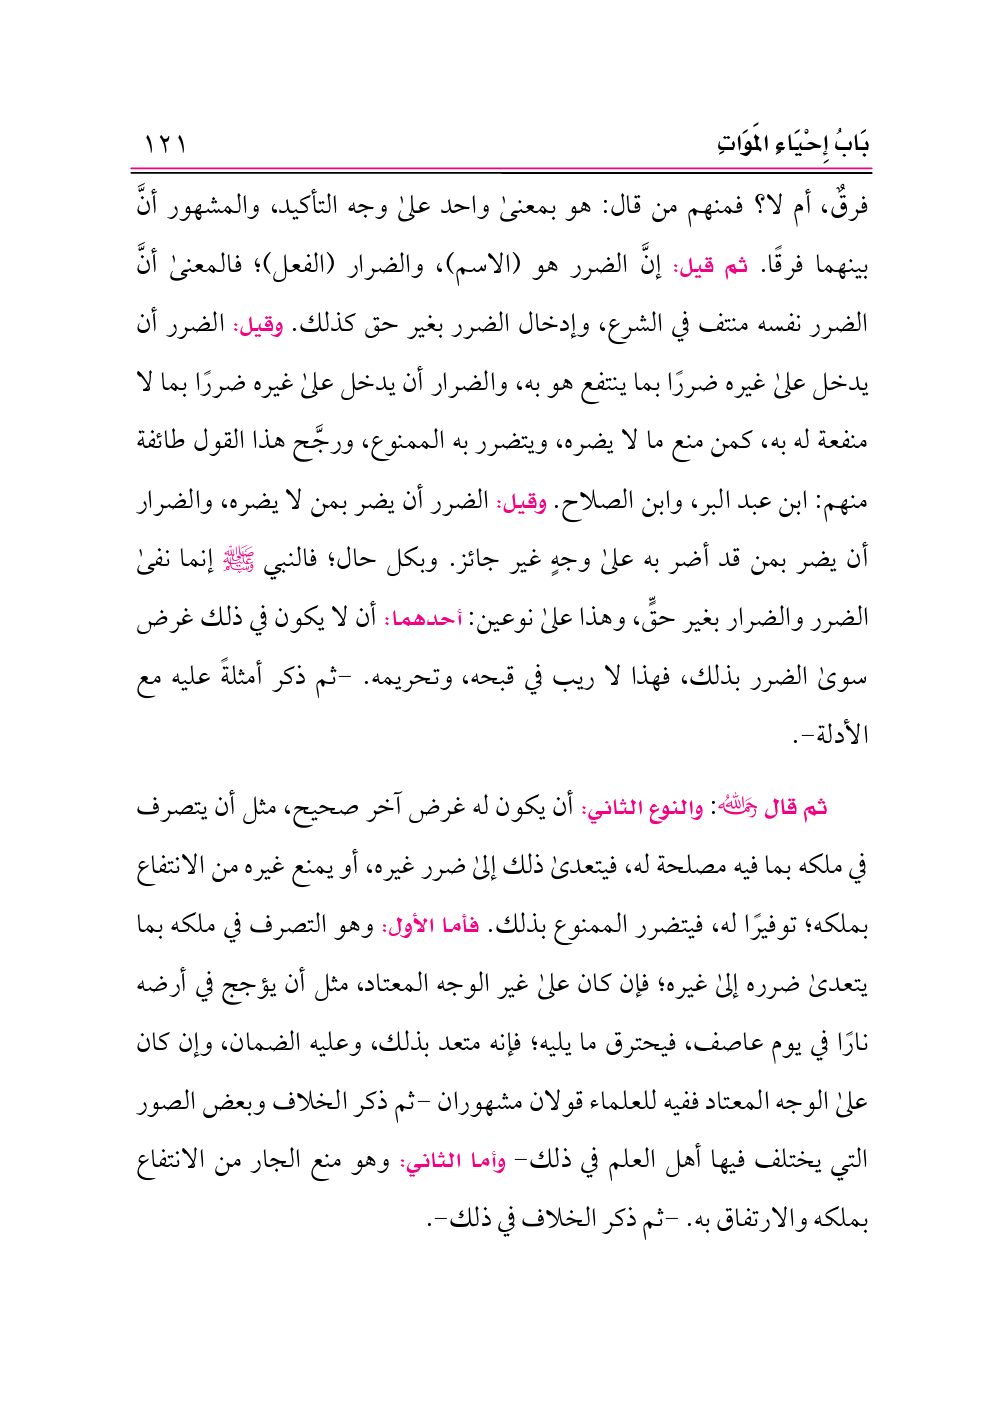 بَابُ إِحْيَاءِ المَوَاتِ ١٢١
فرقٌ، أم لا؟ فمنهم من قال: هو بمعنىٰ واحد علىٰ وجه التأكيد، والمشهور أنَّ
بينهما فرقًا. ثم قيل: إنَّ الضرر هو (الاسم)، والضرار (الفعل)؛ فالمعنىٰ أنَّ
الضرر نفسه منتف في الشرع، وإدخال الضرر بغير حق كذلك. وقيل: الضرر أن
يدخل علىٰ غيره ضررًا بما ينتفع هو به، والضرار أن يدخل علىٰ غيره ضررًا بما لا
منفعة له به، كمن منع ما لا يضره، ويتضرر به الممنوع، ورجَّح هذا القول طائفة
منهم: ابن عبد البر، وابن الصلاح. وقيل: الضرر أن يضر بمن لا يضره، والضرار
أن يضر بمن قد أضر به علىٰ وجهٍ غير جائز. وبكل حال؛ فالنبي ﷺ إنما نفىٰ
الضرر والضرار بغير حقٍّ، وهذا علىٰ نوعين: أحدهما: أن لا يكون في ذلك غرض
سوىٰ الضرر بذلك، فهذا لا ريب في قبحه، وتحريمه. -ثم ذكر أمثلةً عليه مع
الأدلة-.
ثم قال رحمه الله: والنوع الثاني: أن يكون له غرض آخر صحيح، مثل أن يتصرف
في ملكه بما فيه مصلحة له، فيتعدىٰ ذلك إلىٰ ضرر غيره، أو يمنع غيره من الانتفاع
بملكه؛ توفيرًا له، فيتضرر الممنوع بذلك. فأما الأول: وهو التصرف في ملكه بما
يتعدىٰ ضرره إلىٰ غيره؛ فإن كان علىٰ غير الوجه المعتاد، مثل أن يؤجج في أرضه
نارًا في يوم عاصف، فيحترق ما يليه؛ فإنه متعد بذلك، وعليه الضمان، وإن كان
علىٰ الوجه المعتاد ففيه للعلماء قولان مشهوران -ثم ذكر الخلاف وبعض الصور
التي يختلف فيها أهل العلم في ذلك- وأما الثاني: وهو منع الجار من الانتفاع
بملكه والارتفاق به. -ثم ذكر الخلاف في ذلك-.